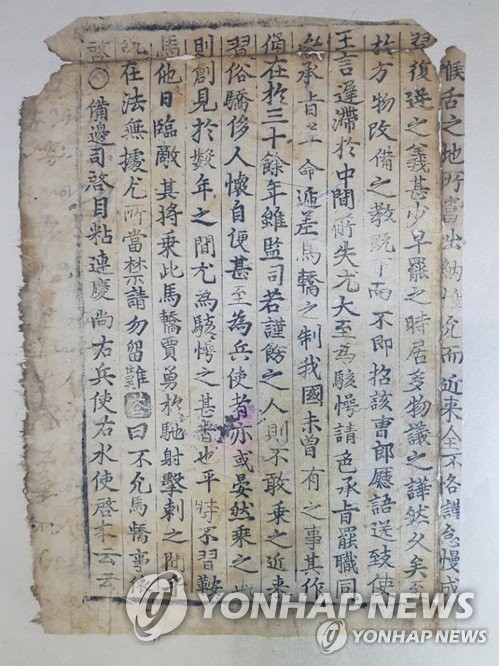 喉舌之地所當出納惟允而近來全不恪謹怠慢成
習復逆之義甚少早罷之時居多物議之譁然久矣至
於方物改備之教旣下而不卽招該曹郎廳語送致使
王言遲滯於中間所失尤大至爲駭愕請色承旨罷職同
承旨並命遞差馬轎之制我國未曾有之事其作
俑在於三十餘年雖監司若謹飭之人則不敢乘之近來
習俗驕侈人懷自便甚至爲兵使者亦或晏然乘之
則創見於數年之間尤爲駭愕之甚者也平時不習鞍
馬他日臨敵其將乘此馬轎賈勇於馳射擊刺之間
況在法無據尤所當禁請勿留難答曰不允馬轎事依
啓○備邊司啓目粘連慶尙右兵使右水使啓本云云
YONHAP NEWS
YONHAP NEWS